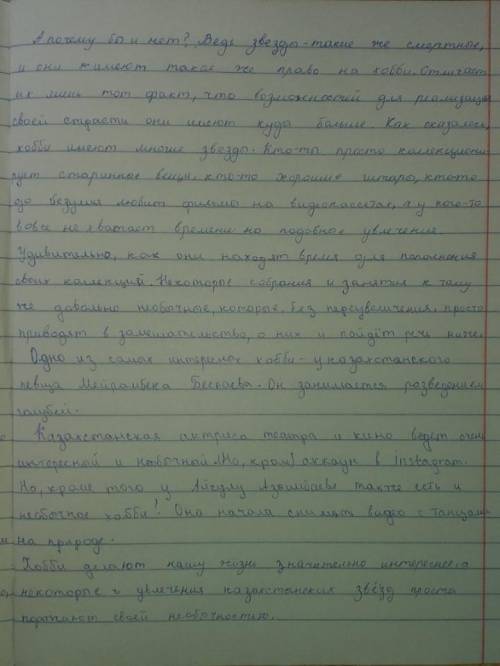 А почему бы и нет? Ведь звезды-такие же смертные,
и они имеют такое же право на хобби. Отличает
их лишь тот факт, что возможностей для реализации
своей страсти они имеют куда больше. Как оказалось,
хобби имеют многие звезды. Кто-то просто коллекциони-
рует старинные вещи, кто-то хорошие кто-то
до безумия любит фильмы на видеокассетах, а у кого-то
вовсе не хватает времени на подобное увлечение.
Удивительно, как они находят время для пополнения
своих колекций. Некоторые собрания и занятия к тому
же довольно необычные, которые, без переувеличения, просто
приводят в замешательство, о них и пойдёт речь ниже.
Одно из самых интерсных хобби-у казахстанского
певца Мейрамбека Беспаева. Он занимается разведением
голубей.
Казахстанская актриса театра и кино ведет очень
интересной и аккаун в instagram.
Но, кроме того у Айгулу также есть и
необычное хобби! Она начала снимать видео с танцами
на природе.
Хобби делают нашу жизнь значительно интереснее, а
некоторые увлечения казахстанских звёзд просто
поражают своей необычностью.